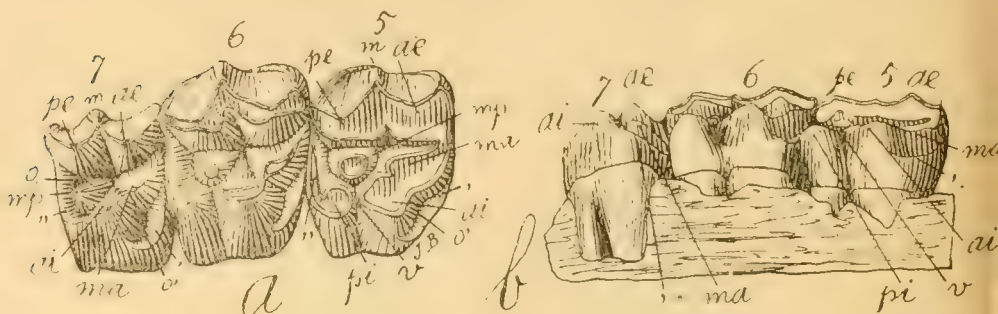 7 6 5
pe m ae pe m ae
mp
ma
o
mp
"
ai
ma o' " pi v j.B o' ai '
a
7 ae 6 pe 5 ae
ai
ma
'
ai
' .. ma pi v
b